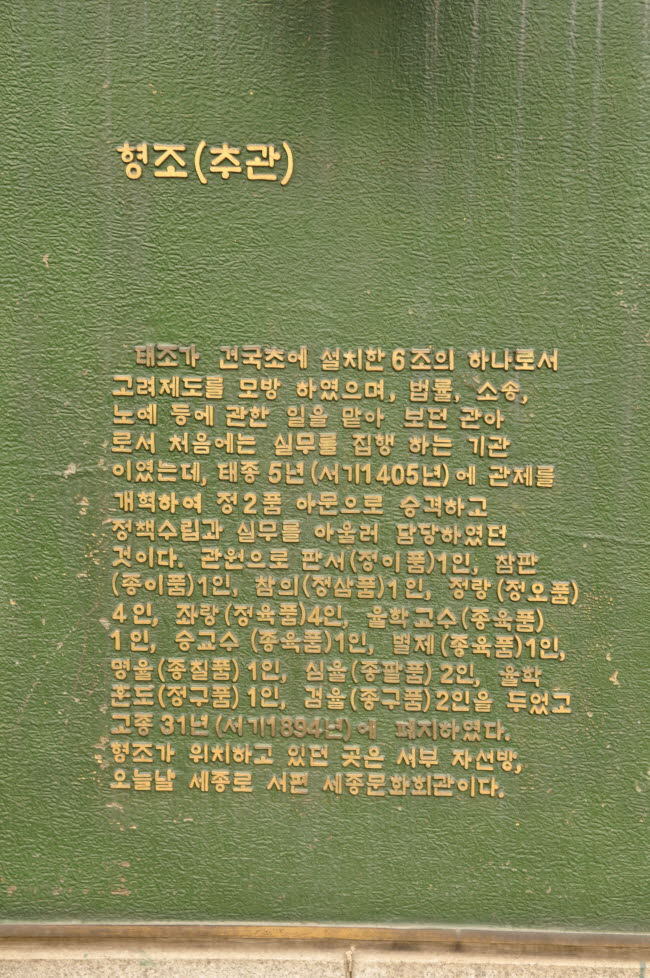 형조(추관)
태조가 건국초에 설치한 6조의 하나로서
고려제도를 모방 하였으며, 법률, 소송,
노예 등에 관한 일을 맡아 보던 관아
로서 처음에는 실무를 집행 하는 기관
이였는데, 태종 5년(서기1405년)에 관제를
개혁하여 정2품 아문으로 승격하고
정책수립과 실무를 아울러 담당하였던
것이다. 관원으로 판서(정이품)1인, 참판
(종이품)1인, 참의(정삼품)1인, 정랑(정오품)
4인, 좌랑(정육품)4인, 율학교수(종육품)
1인, 승교수 (종육품)1인, 별제(종육품)1인,
명율(종칠품)1인, 심율(종팔품)2인, 율학
훈도(정구품)1인, 검율(종구품)2인을 두었고
고종 31년(서기1894년)에 폐지하였다.
형조가 위치하고 있던 곳은 서부 자선방,
오늘날 세종로 서편 세종문화회관이다.